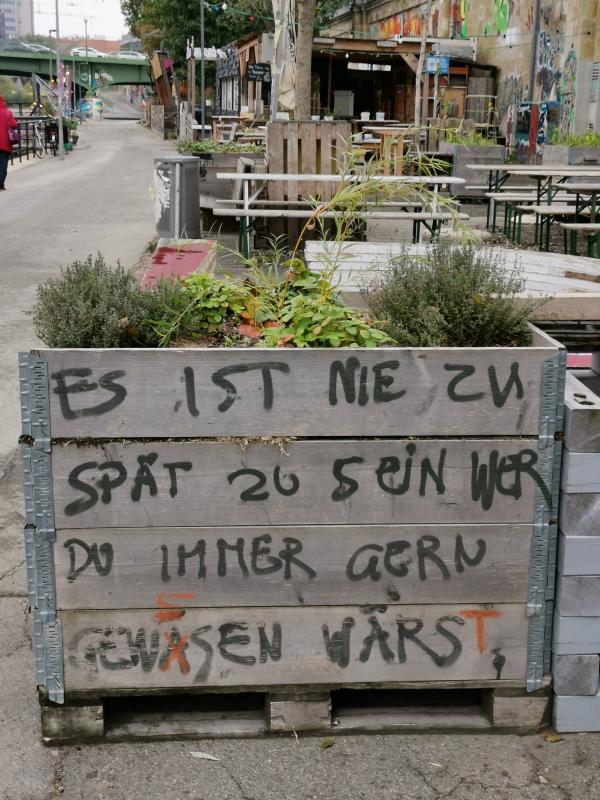 ES IST NIE ZU
SPÄT ZU SEIN WER
DU IMMER GERN
GEWESEN WÄRST